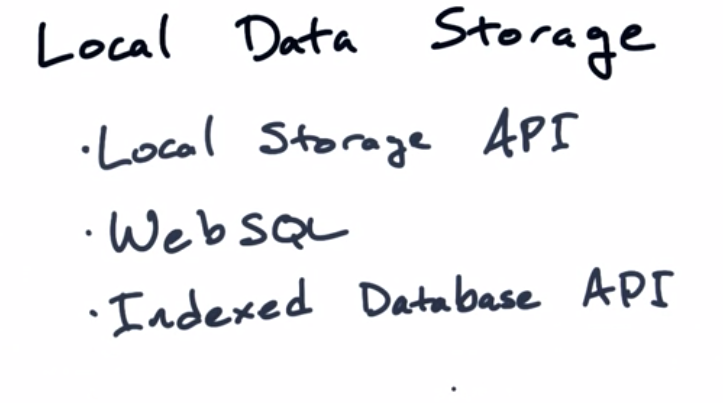 Local Data Storage
· Local Storage API
· WebSQL
· Indexed Database API